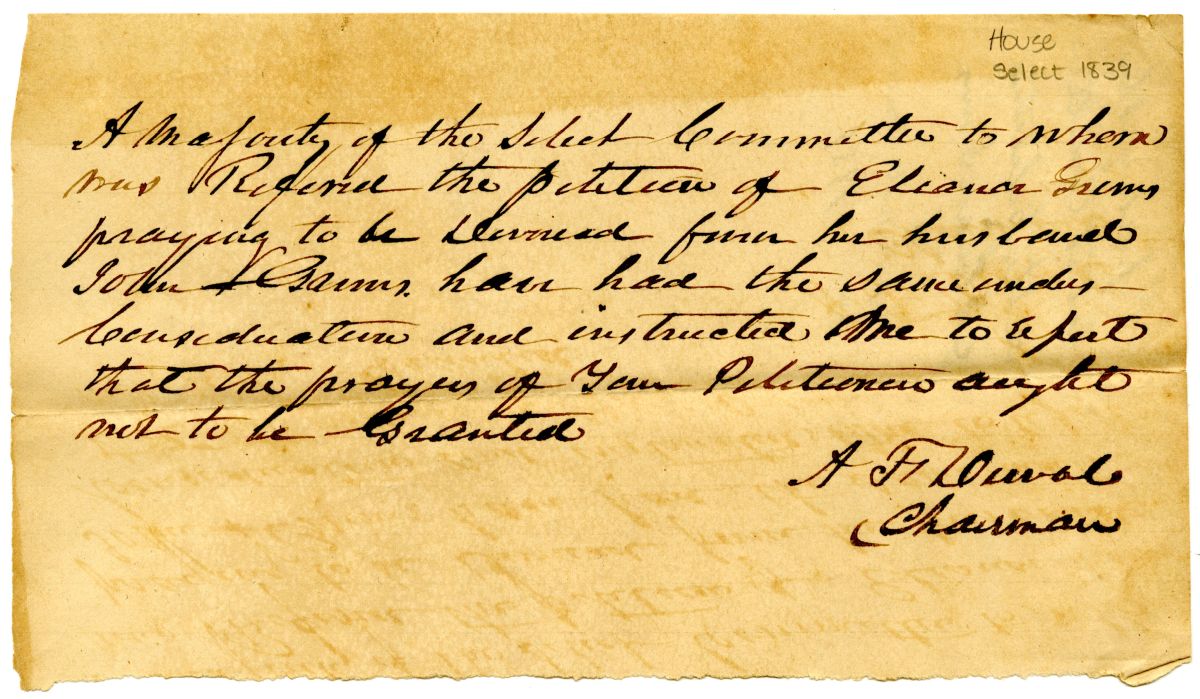 House
Select 1839
A Majority of the Select Committee to whom
was Refered the petition of Eleanor Grems
praying to be Devorced from her husband
John Garms. have had the same under
Consideration and instructed Me to Repert
that the prayers of Your Petitioner aught
not to be Granted
A F Duval
Chairman